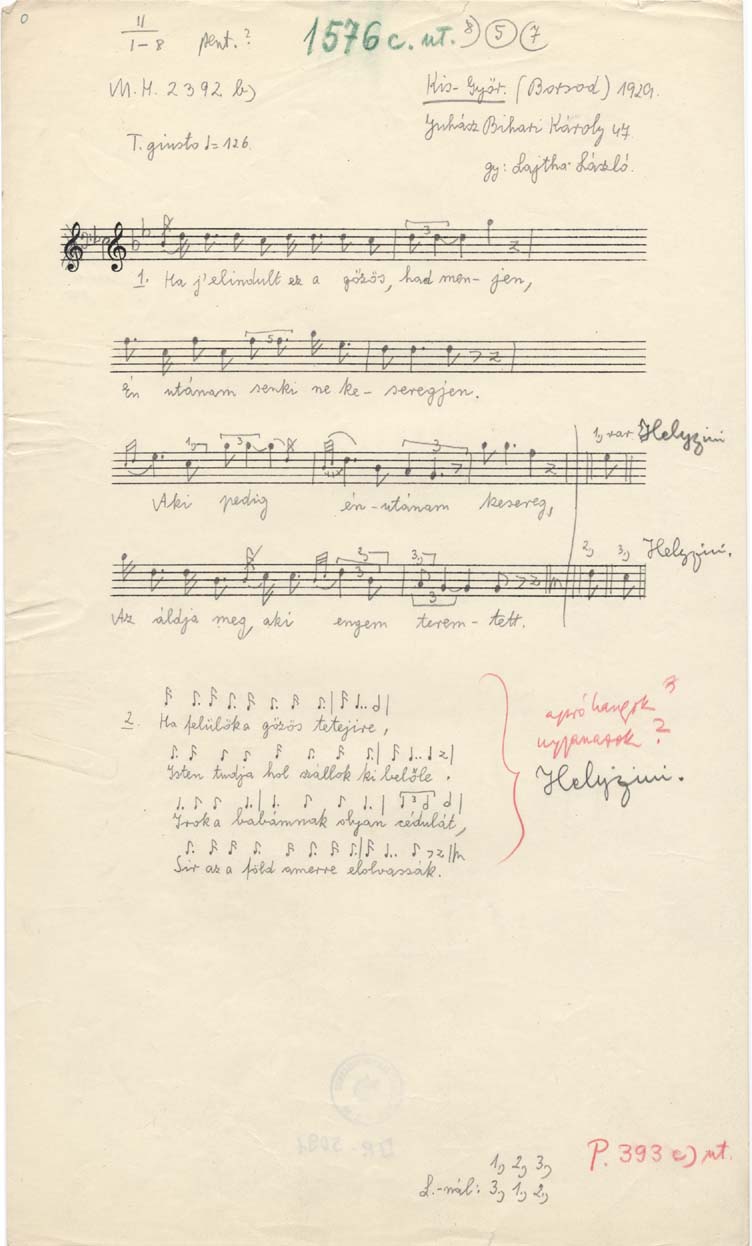 11
1-8
pent.?
1576 c. ut. 8) 5 7
M.H. 2392 b)
Kis-Győr. (Borsod) 1929.
Juhász Bihari Károly 47.
T. giusto = 126.
gy: Lajtha László.
1. Ha j'elindult ez a gőzös, had men-jen,
Én utánam senki ne ke-seregjen.
1, var Helyzini
Aki pedig én-utánam kesereg,
2, 3, Helyzini.
Az áldja meg, aki engem terem-tett.
2. Ha felülök a gőzös tetejire,
Isten tudja hol szállok ki belőle.
Irok a babámnak olyan cédulát,
Sir az a föld amerre elolvassák.
apróhangok
ugyanazok ?
Helyzini.
1, 2, 3,
L.-nál: 3, 1, 2,
P. 393 c) ut.